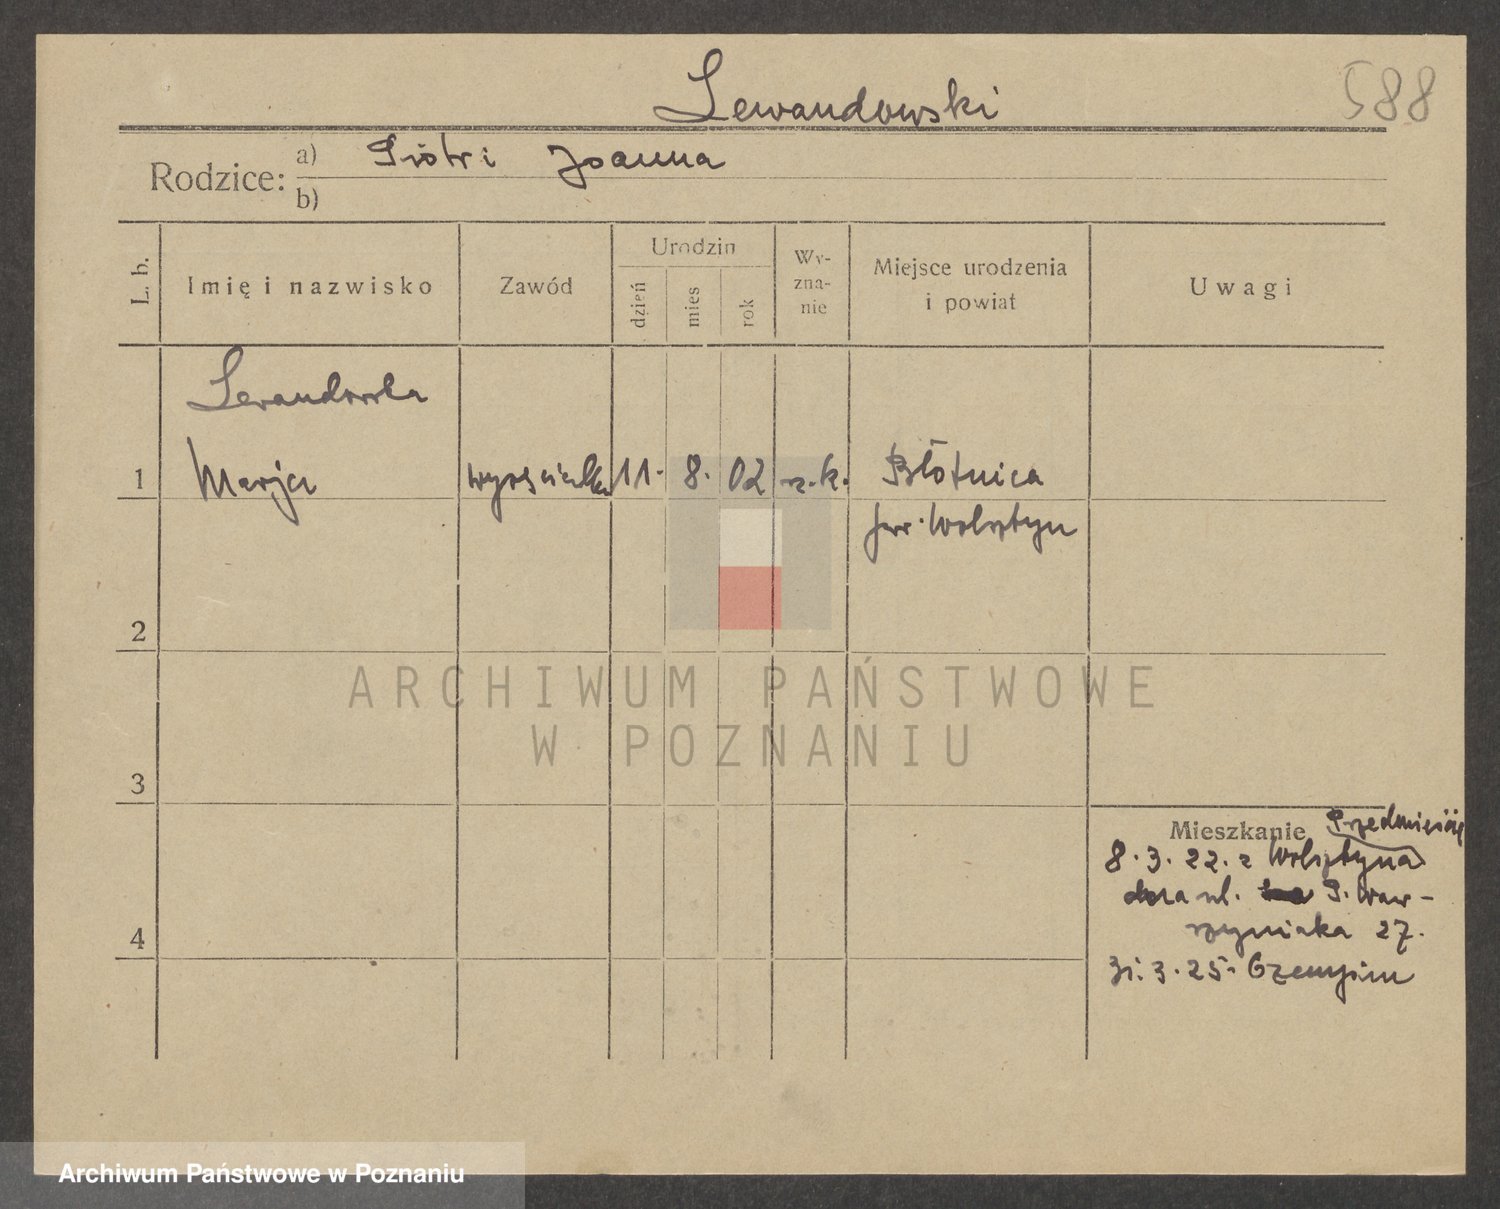 Lewandowski
588
Rodzice:
a) Piotr i Joanna
b)
L. b.
Imię i nazwisko
Zawód
Urodzin
dzień
mies
rok
Wy-
zna-
nie
Miejsce urodzenia
i powiat
Uwagi
Lewandowska
1 Marja 11. 8. 02 r.k. Błotnica
pow. Wolsztyn
2
3
4
Mieszkanie
Przedmieście
8.3.22. z Wolsztyna
ul. P. Waw-
rzyniaka 27.
31.3.25.
ARCHIWUM PAŃSTWOWE
W POZNANIU
Archiwum Państwowe w Poznaniu